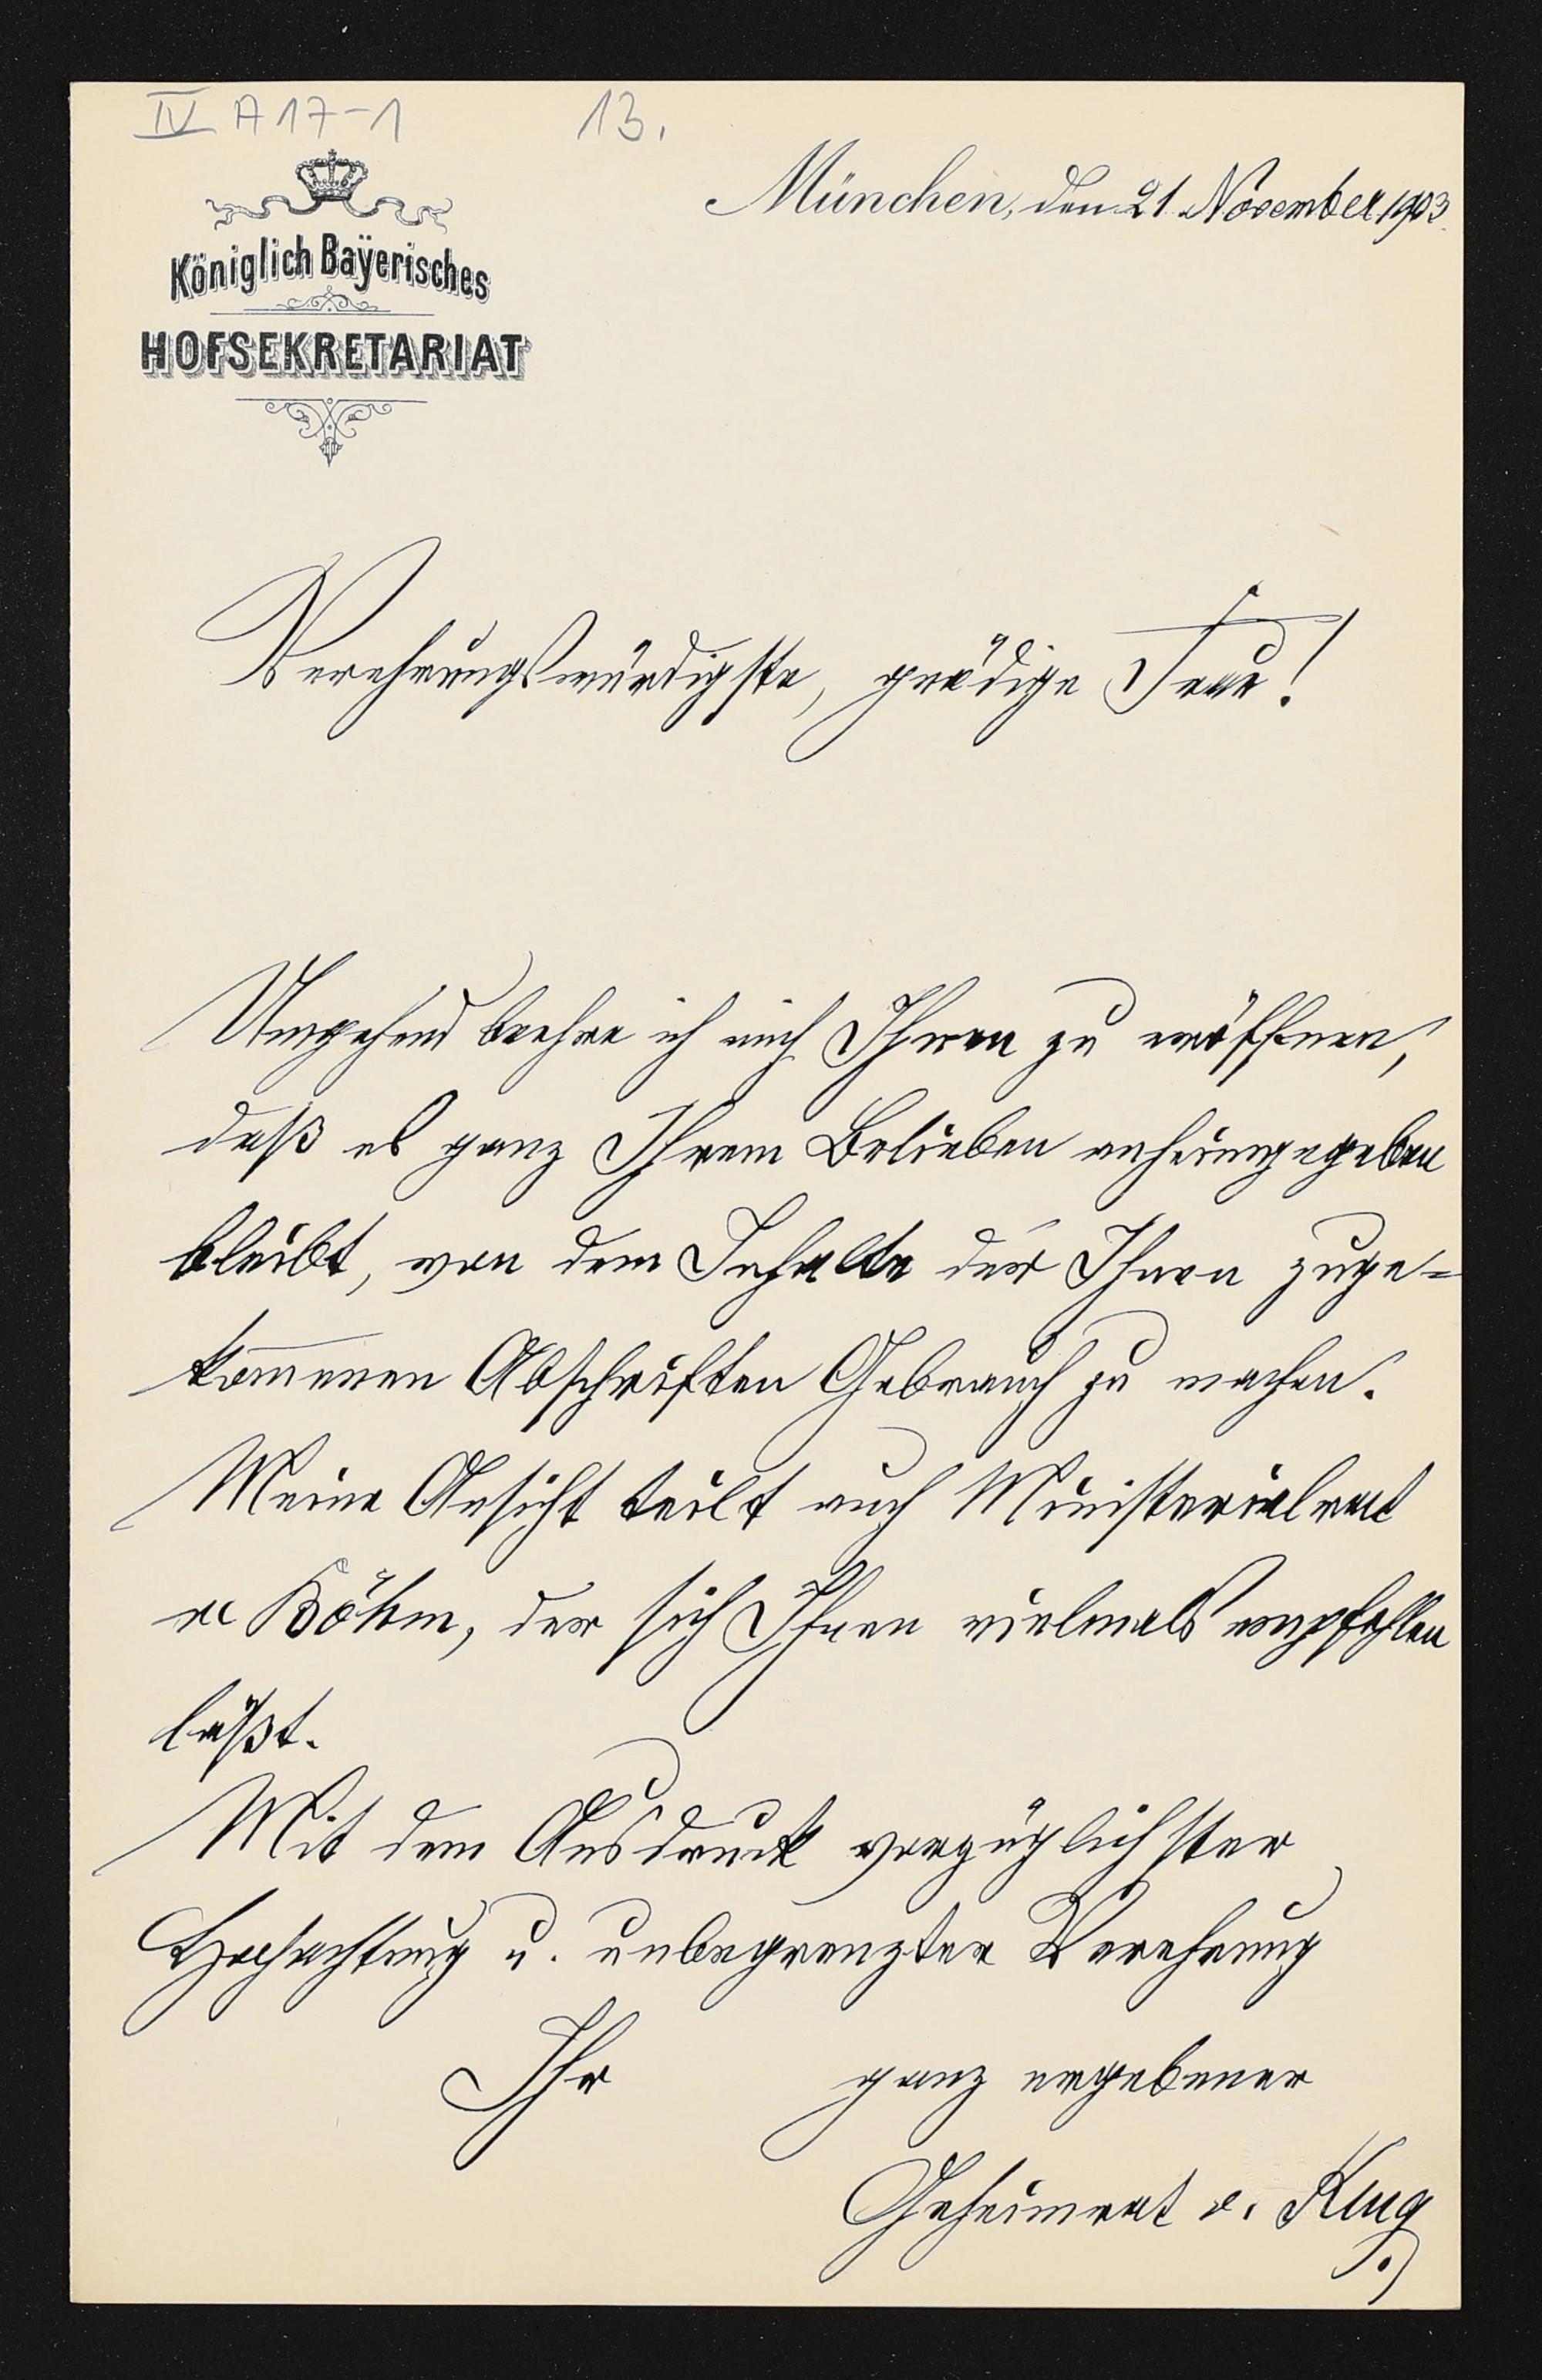 IV A 17-1 13.
München, den 21. November 1903.
Königlich Bayerisches
HOFSEKRETARIAT
Verehrungswürdigste, gnädige Frau!
Umgehend beehre ich mich Ihnen zu eröffnen,
daß es ganz Ihrem Belieben anheimgegeben
bleibt, von dem Inhalte der Ihnen zuge=
kom̅enen Abschriften Gebrauch zu machen.
Meine Ansicht teilt auch Ministerialrat
Böhm, der sich Ihnen vielmals empfehlen
läßt.
Mit dem Ausdruck vorzüglichster
Hochachtung u. unbegrenzter Verehrung
Ihr ganz ergebener
Geheimrat v. Klug